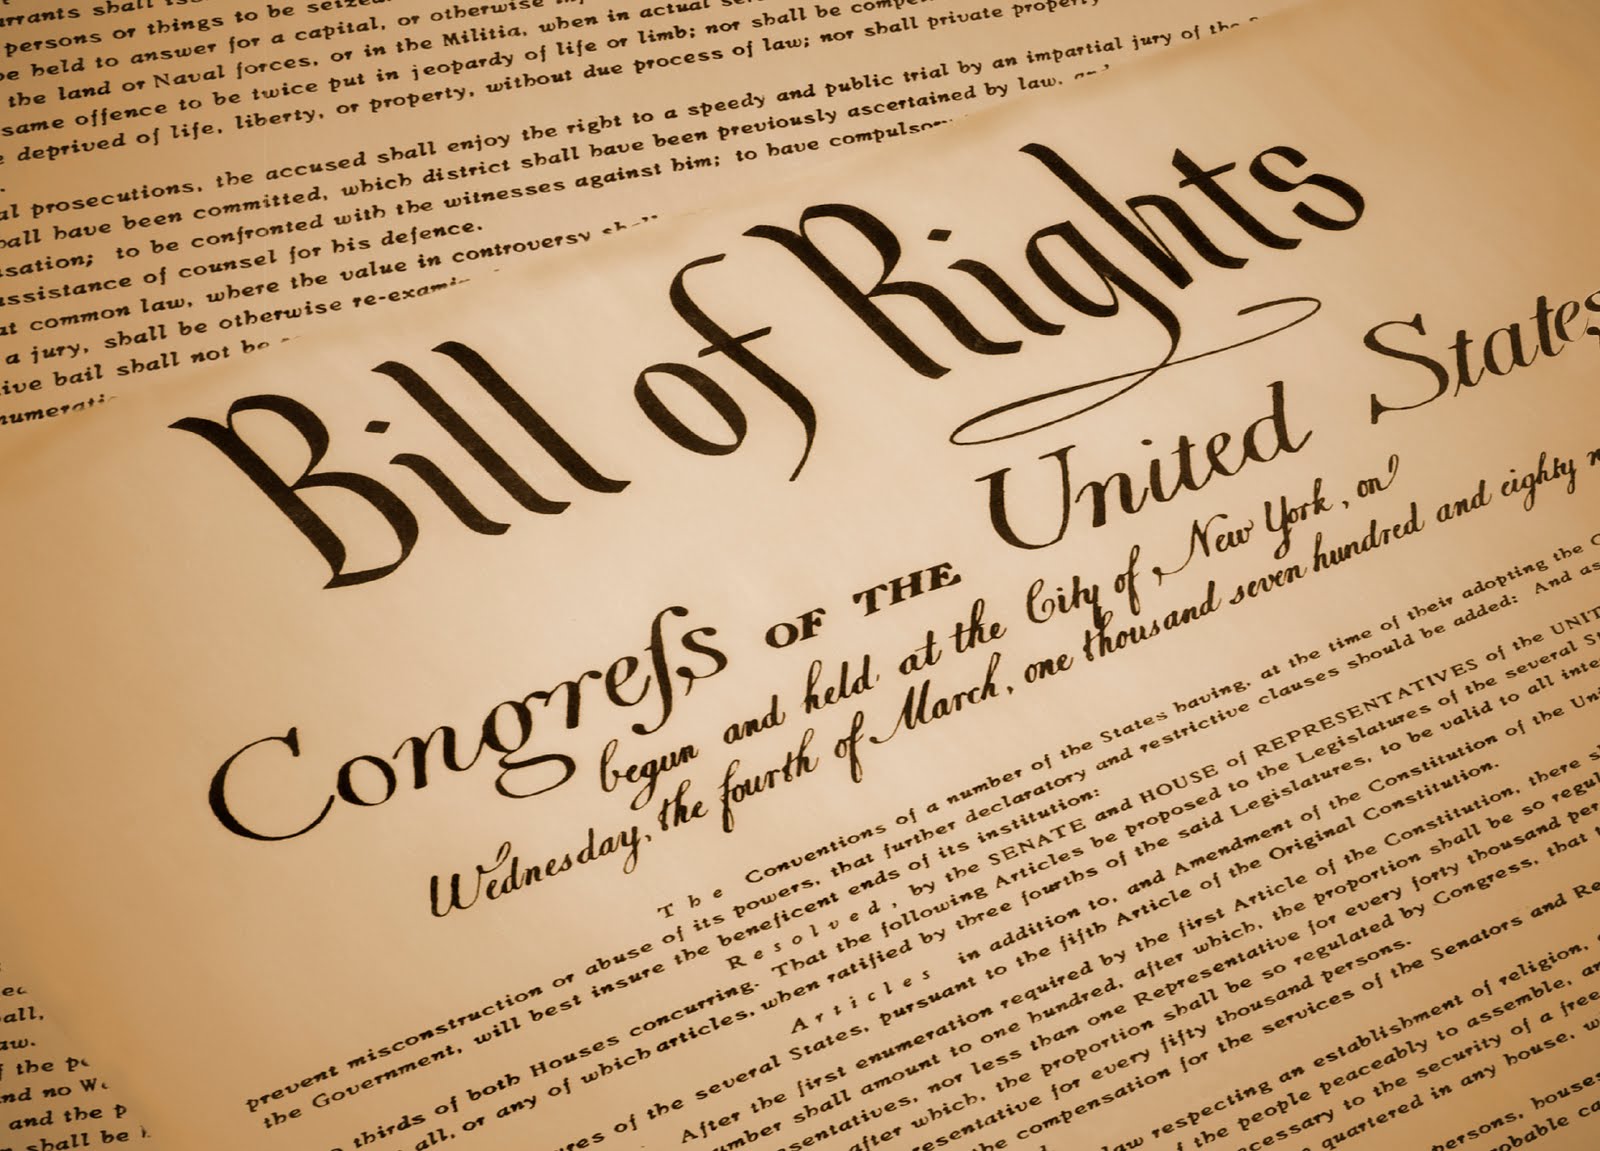 warrants shall
persons or things to be seized
be held to answer for a capital, or otherwise
the land or Naval forces, or in the Militia, when in actual
same offence to be twice put in jeopardy of life or limb; nor shall be
deprived of life, liberty, or property, without due process of law; nor shall private property
prosecutions, the accused shall enjoy the right to a speedy and public trial by an impartial jury of the
shall have been committed, which district shall have been previously ascertained by law, and
to be confronted with the witnesses against him; to have compulsory
assistance of counsel for his defence.
at common law, where the value in controversy
a jury, shall be otherwise
bail shall not be
Bill of Rights
Congreſs OF THE United States
begun and held at the City of New York, on
Wednesday, the fourth of March, one thousand seven hundred and eighty
The Conventions of a number of the States having, at the time of their adopting the
prevent misconstruction or abuse of its powers, that further declaratory and restrictive clauses should be added: And as
the Government, will best insure the beneficent ends of its institution:
Resolved, by the SENATE and HOUSE of REPRESENTATIVES of the
thirds of both Houses concurring. That the following Articles be proposed to the Legislatures of the several
all, or any of which articles, when ratified by three fourths of the said Legislatures, to be valid to all
Articles in addition to, and Amendment of the Constitution of the
of the several States, pursuant to the fifth Article of the Original Constitution.
After the first enumeration required by the first Article of the Constitution, there
shall amount to one hundred, after which, the proportion shall be so
nor less than one Representative for every forty thousand
after which, the proportion shall be so regulated by Congress, that
for every fifty thousand persons.
the compensation for the services of the Senators and
law respecting an establishment of religion,
of the people peaceably to assemble,
to the security of a free
quartered in any house,
persons, houses
of the
and no
and the
shall be